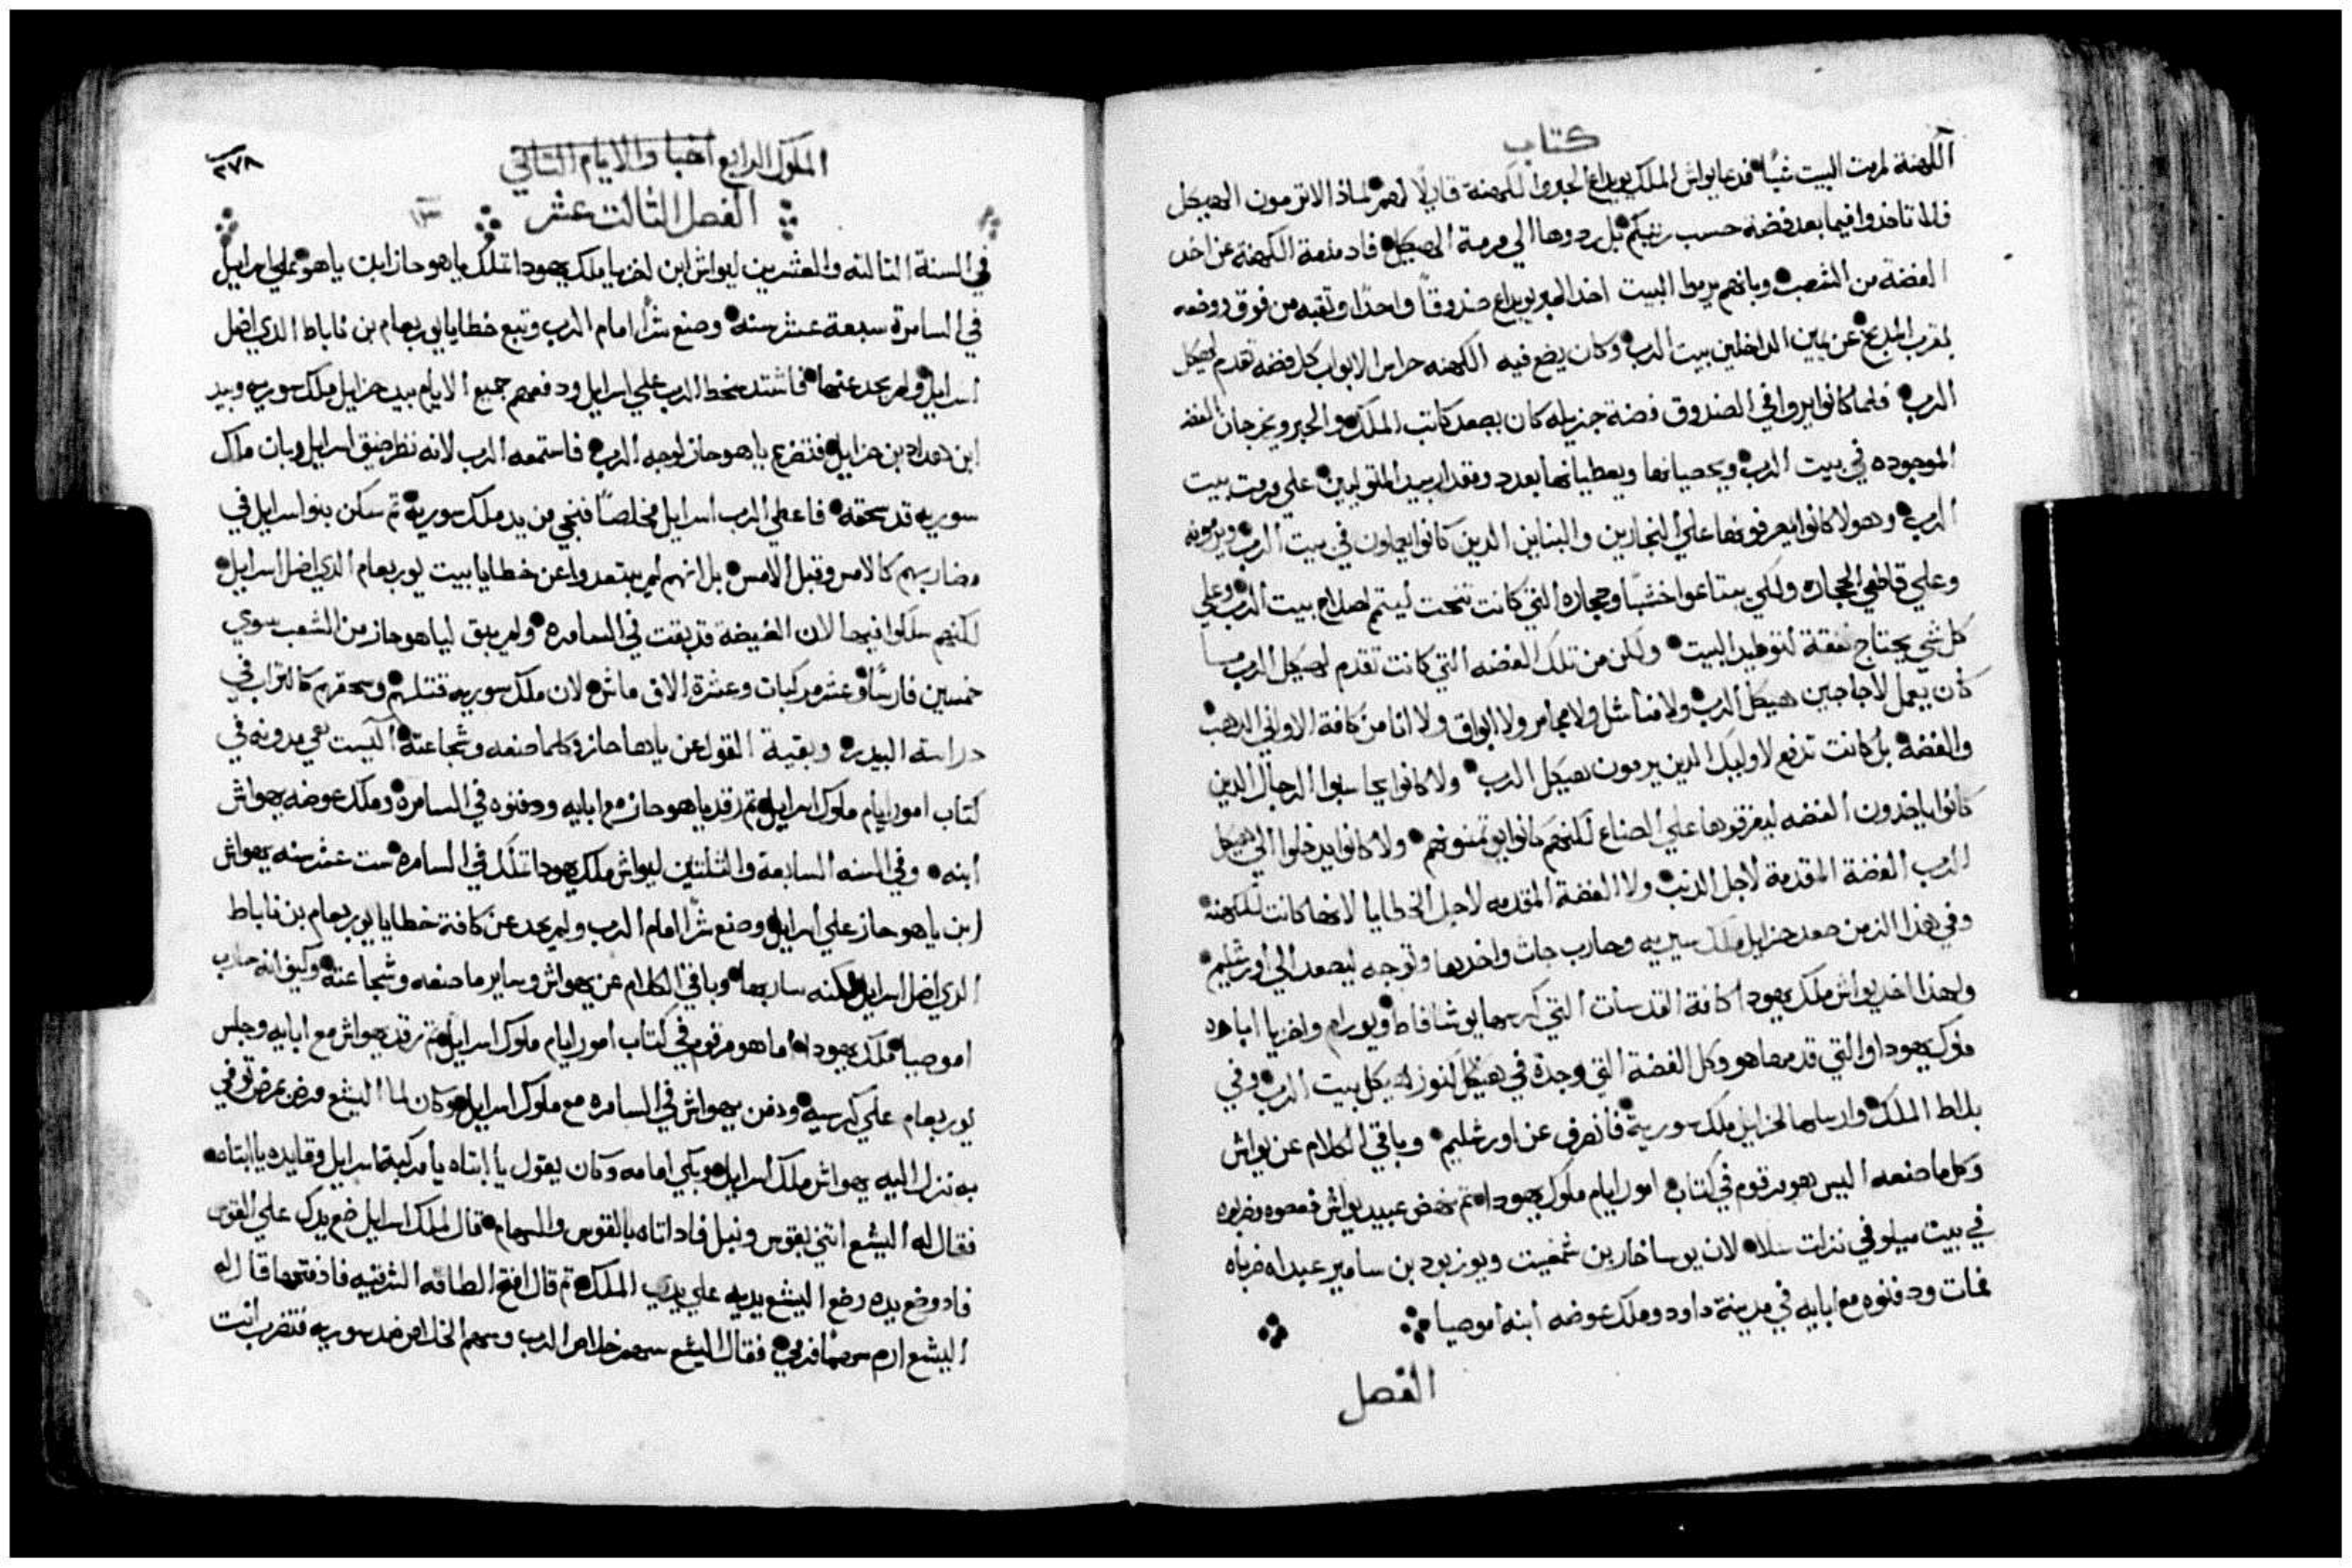 كتاب
الكهنة لمرمت البيت شيًا فدعا يواش الملك يوياداع الحبر والكهنة قايلًا لهم لماذا لا ترمون الهيكل
فلا تاخدوا فيما بعد فضة حسب رتبتكم بل ردوها الي مرمة الهيكل فاد منعة الكهنة عن اخد
الفضة من الشعب وبانهم يرموا البيت اخد الحبر يوياداع صندوقًا واحدًا وثقبه من فوق ووضعه
بقرب المدبح عن يمين الداخلين بيت الرب وكان يضع فيه الكهنه حراس الابواب كل فضه تقدم لهيكل
الرب فلما كانوا يروا في الصندوق فضة جزيله كان يصعد كاتب الملك والحبر ويخرجان الفضه
الموجوده في بيت الرب ويحصيانها ويعطيانها بعدد ومقدار بيد المتوليين علي مرمت بيت
الرب وهولا كانوا يصرفونها علي النجارين والبنايين الدين كانوا يعملون في بيت الرب ويرمونه
وعلي قاطعي الحجاره ولكي يبتاعوا خشبًا وحجارة التي كانت تنحت ليتم اصلاح بيت الرب وعلي
كل شي يحتاج نفقة لتوطيد البيت ولكن من تلك الفضه التي كانت تقدم لهيكل الرب ما
كان يعمل لاجاجين هيكل الرب ولا مناشل ولا مجامر ولا ابواق ولا انا من كافة الاواني الدهب
والفضه بل كانت تدفع لاوليك الدين يرمون هيكل الرب ولا كانوا يحاسبوا الرجال الدين
كانوا ياخدون الفضه ليفرقوها علي الصناع لكنهم كانوا يوتمنونهم ولا كانوا يدخلوا الي هيكل
الرب الفضة المقدمة لاجل الدنب ولا الفضة المقدمه لاجل الخطايا لانها كانت للكهنه
وفي هدا الزمن صعد حزايل ملك سيريه وحارب جات واخدها وتوجه ليصعد الي اورشليم
ولهدا اخد يواش ملك يهودا كافة القدسات التي كرسها يوشافاط ويورام واخزيا اباهه
ملوك يهودا والتي قدمها هو وكل الفضة التي وجدة في كنوز هيكل بيت الرب وفي
بلاط الملك وارسلها لحزايل ملك سورية فانصرف عن اورشليم وباقي الكلام عن يواش
وكل ما صنعه اليس هو مرقوم في كتاب امور ايام ملوك يهودا تم نهض عبيد يواش فعصوه وضربوه
في بيت ميلو في نزلت سلا لان يوساخار بن شمغيت ويوزبود بن سامير عبداه ضرباه
فمات ودفنوه مع ابايه في مدينة داود وملك عوضه ابنه أموصيا
الفصل
٢٧٨
الملوك الرابع أخبار الايام التاني
الفصل التالت عشر
في السنة التالته والعشرين ليواش ابن اخزيا ملك يهودا تملك ياهوحاز ابن ياهو علي اسرايل
في السامرة سبعة عشر سنه وصنع شرًا امام الرب وتبع خطايا يوربعام بن ناباط الدي اضل
اسرايل ولم يحد عنها فاشتد سخط الرب علي اسرايل ودفعهم جميع الايام بيد حزايل ملك سوريه وبيد
ابن هداد بن حزايل فتضرع ياهوحاز لوجه الرب فاستمعه الرب لانه نظر ضيق اسرايل وبان ملك
سوريه قد سحقه فاعطي الرب اسرايل مخلصًا فنجي من يد ملك سورية تم سكن بنو اسرايل في
مضاربهم كالامس وقبل الامس بل انهم لم يبتعدوا عن خطايا بيت يوربعام الدي اضل اسرايل
لكنهم سلكوا فيها لان الغيضة قد بقت في السامره ولم يبق لياهوحاز من الشعب سوي
خمسين فارسًا وعشر مركبات وعشرة الاف ماش لان ملك سوريه قتلهم وسحقهم كالتراب في
دراسة البيدر وبقية القول عن ياهاحاز وكلما صنعه وشجاعته اليست هي مدونه في
كتاب امور ايام ملوك اسرايل تم رقد ياهوحاز مع ابايه ودفنوه في السامرة وملك عوضه يهواش
أبنه وفي السنه السابعة والتلتين ليواش ملك يهودا تملك في السامره ست عشر سنه يهواش
ابن ياهوحاز علي اسرايل وصنع شرًا امام الرب ولم يحد عن كافة خطايا يوربعام بن ناباط
الدي اضل اسرايل لكنه سار بها وباقي الكلام عن يهواش وساير ما صنعه وشجاعته وكيف انه حارب
اموصيا ملك يهودا اما هو مرقوم في كتاب أمور ايام ملوك اسرايل تم رقد يهواش مع ابايه وجلس
يوربعام علي كرسيه ودفن يهواش في السامره مع ملوك اسرايل وكان لما اليشع مرض بمرض توفي
به نزل اليه يهواش ملك اسرايل وبكي امامه وكان يقول يا أبتاه يا أبتاه يا مركبة اسرايل وقايده
فقال له أليشع أتني بقوس ونبل فاد اتاه بالقوس والسهام قال لملك اسرايل ضع يدك علي القوس
فاد وضع يده وضع اليشع يديه علي يدي الملك تم قال افتح الطاقه الشرقيه فاد فتحها قال له
اليشع ارم سهمًا فرمي فقال اليشع سهم خلاص الرب وسهم الخلاص ضد سوريه فتضرب انت